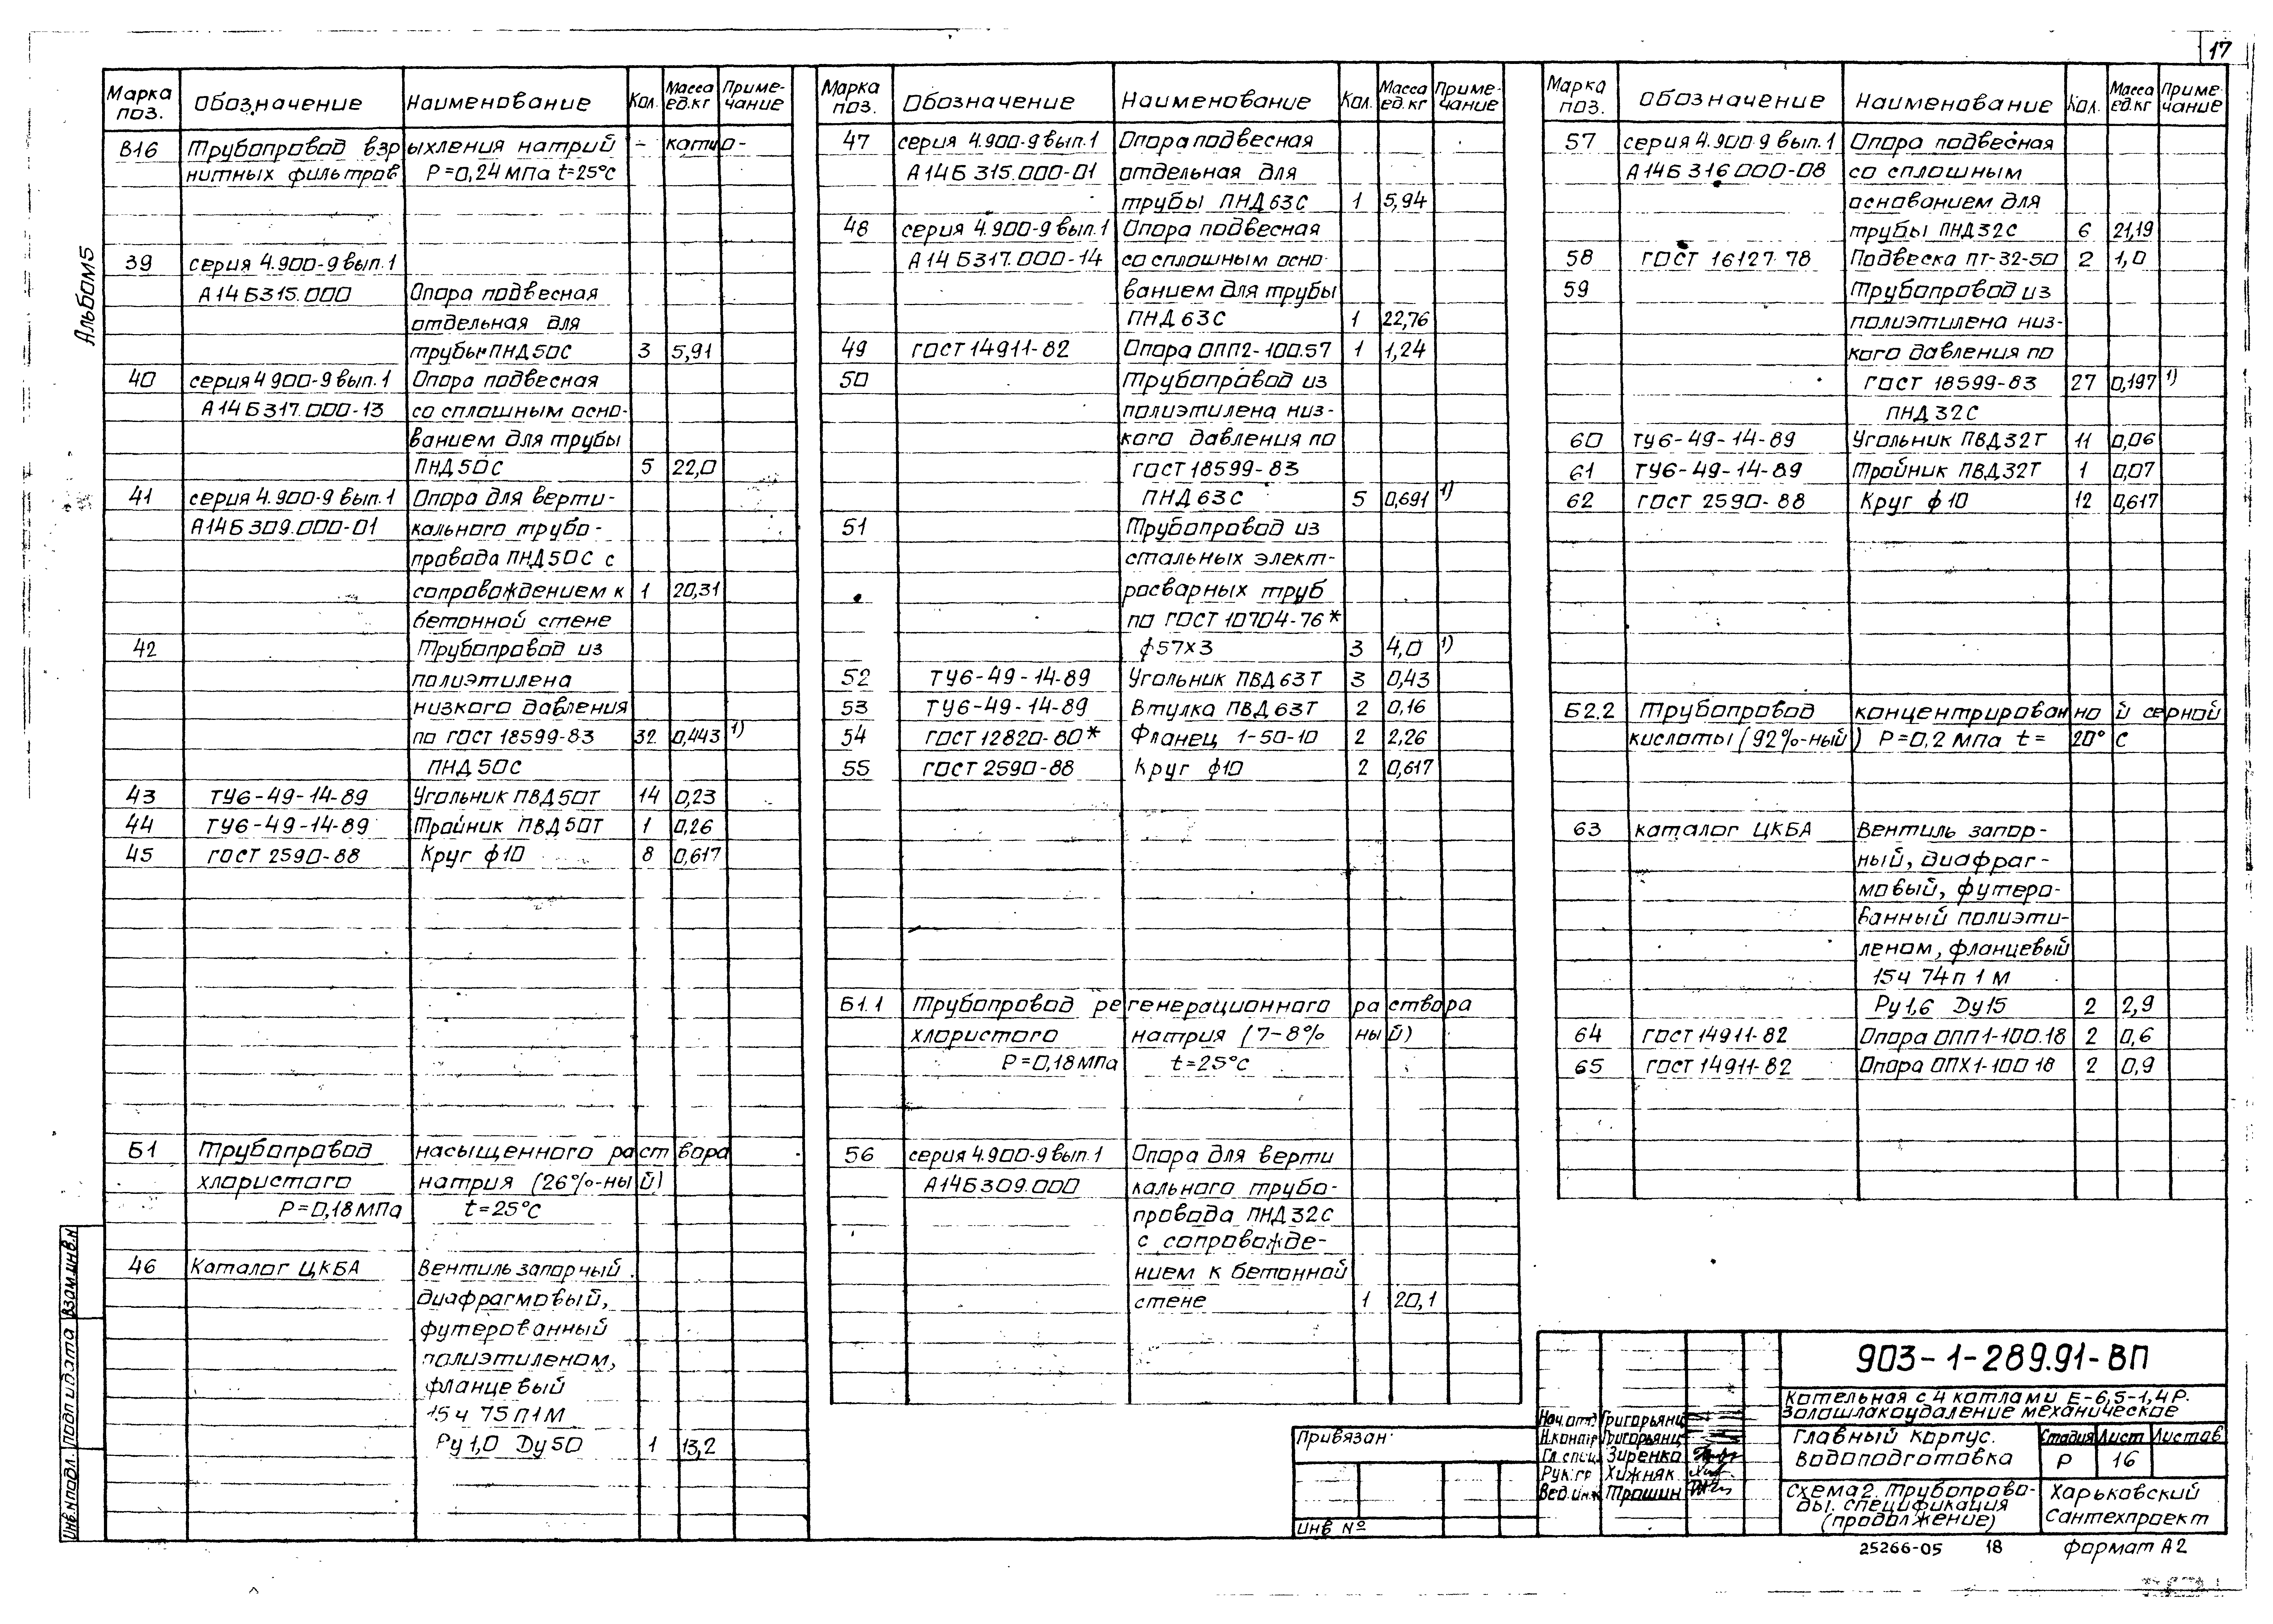 17
Альбом5
Марка поз. Обозначение Наименование Кол. Масса ед.кг Приме-чание
В16 Трубопровод взрыхления натрий - катио-
нитных фильтров Р=0,24МПа t=25°С
39 серия 4.900-9 вып.1
А14Б315.000 Опора подвесная
отдельная для
трубы ПНД50С 3 5,91
40 серия 4.900-9 вып.1 Опора подвесная
А14Б317.000-13 со сплошным осно-
ванием для трубы
ПНД50С 5 22,0
41 серия 4.900-9 вып.1 Опора для верти-
А14Б309.000-01 кального трубо-
провода ПНД50С с
сопровождением к 1 20,31
бетонной стене
42 Трубопровод из
полиэтилена
низкого давления
по ГОСТ 18599-83 32 0,443 1)
ПНД50С
43 ТУ6-49-14-89 Угольник ПВД50Т 14 0,23
44 ТУ6-49-14-89 Тройник ПВД50Т 1 0,26
45 ГОСТ 2590-88 Круг ф10 8 0,617
Б1 Трубопровод насыщенного раствора
хлористого натрия (26%-ный)
Р=0,18МПа t=25°С
46 Каталог ЦКБА Вентиль запорный
диафрагмовый,
футерованный
полиэтиленом,
фланцевый
15ч 75п1М
Ру1,0 Ду50 1 13,2
Марка поз. Обозначение Наименование Кол. Масса ед.кг Приме-чание
47 серия 4.900-9 вып.1 Опора подвесная
А14Б315.000-01 отдельная для
трубы ПНД63С 1 5,94
48 серия 4.900-9 вып.1 Опора подвесная
А14Б317.000-14 со сплошным осно-
ванием для трубы
ПНД63С 1 22,76
49 ГОСТ 14911-82 Опора ОПП2-100.57 1 1,24
50 Трубопровод из
полиэтилена низ-
кого давления по
ГОСТ 18599-83
ПНД63С 5 0,691 1)
51 Трубопровод из
стальных элект-
росварных труб
по ГОСТ 10704-76*
ф57х3 3 4,0 1)
52 ТУ6-49-14-89 Угольник ПВД63Т 3 0,43
53 ТУ6-49-14-89 Втулка ПВД63Т 2 0,16
54 ГОСТ 12820-80* Фланец 1-50-10 2 2,26
55 ГОСТ 2590-88 Круг ф10 2 0,617
Б1.1 Трубопровод регенерационного раствора
хлористого натрия (7-8% ный)
Р=0,18МПа t=25°С
56 серия 4.900-9 вып.1 Опора для верти
А14Б309.000 кального трубо-
провода ПНД32С
с сопровожде-
нием к бетонной
стене 1 20,1
Марка поз. Обозначение Наименование Кол. Масса ед.кг Приме-чание
57 серия 4.900-9 вып.1 Опора подвесная
А14Б316000-08 со сплошным
основанием для
трубы ПНД32С 6 21,19
58 ГОСТ 16127-78 Подвеска ПТ-32-50 2 1,0
59 Трубопровод из
полиэтилена низ-
кого давления по
ГОСТ 18599-83 27 0,197 1)
ПНД32С
60 ТУ6-49-14-89 Угольник ПВД32Т 11 0,06
61 ТУ6-49-14-89 Тройник ПВД32Т 1 0,07
62 ГОСТ 2590-88 Круг ф10 12 0,617
Б2.2 Трубопровод концентрированной серной
кислоты (92%-ный) Р=0,2МПа t= 20° С
63 каталог ЦКБА Вентиль запор-
ный, диафраг-
мовый, футеро-
ванный полиэти-
леном, фланцевый
15ч 74п 1М
Ру1,6 Ду15 2 2,9
64 ГОСТ 14911-82 Опора ОПП1-100.18 2 0,6
65 ГОСТ 14911-82 Опора ОПХ1-100 18 2 0,9
Инв.№подл. Подп и дата Взам.инв.№
Привязан:
Инв №
Нач.отд. Григорьянц
Н.контр Григорьянц
Гл.спец. Зиренко
Рук.гр Хижняк
Вед.инж Трошин
903-1-289.91-ВП
Котельная с 4 котлами Е-6,5-1,4Р.
Золошлакоудаление механическое
Главный корпус.
Водоподготовка
Стадия Лист Листов
Р 16
Схема2. Трубопрово-
ды. Спецификация
(продолжение)
Харьковский
Сантехпроект
25266-05 18 формат А2